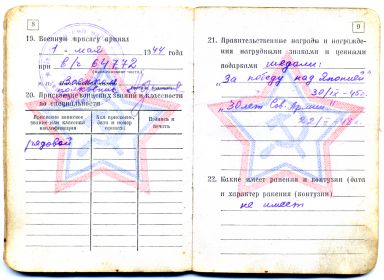 8
19. Военную присягу принял
1 мая 1944 года
при в/ч 64772
(наименование части)
Военком
полковник
20. Присвоение военных званий и классности
по специальности
Присвоено воинское
звание или классная
квалификация
Кем присвоено,
дата и номер
приказа
Подпись и
печать
рядовой
9
21. Правительственные награды и награжде-
ния нагрудными знаками и ценными
подарками медали:
"За победу над Японией"
30/IX-45г.
"30 лет Сов. Армии"
22. Какие имеет ранения и контузии (дата
и характер ранения (контузии)
не имеет